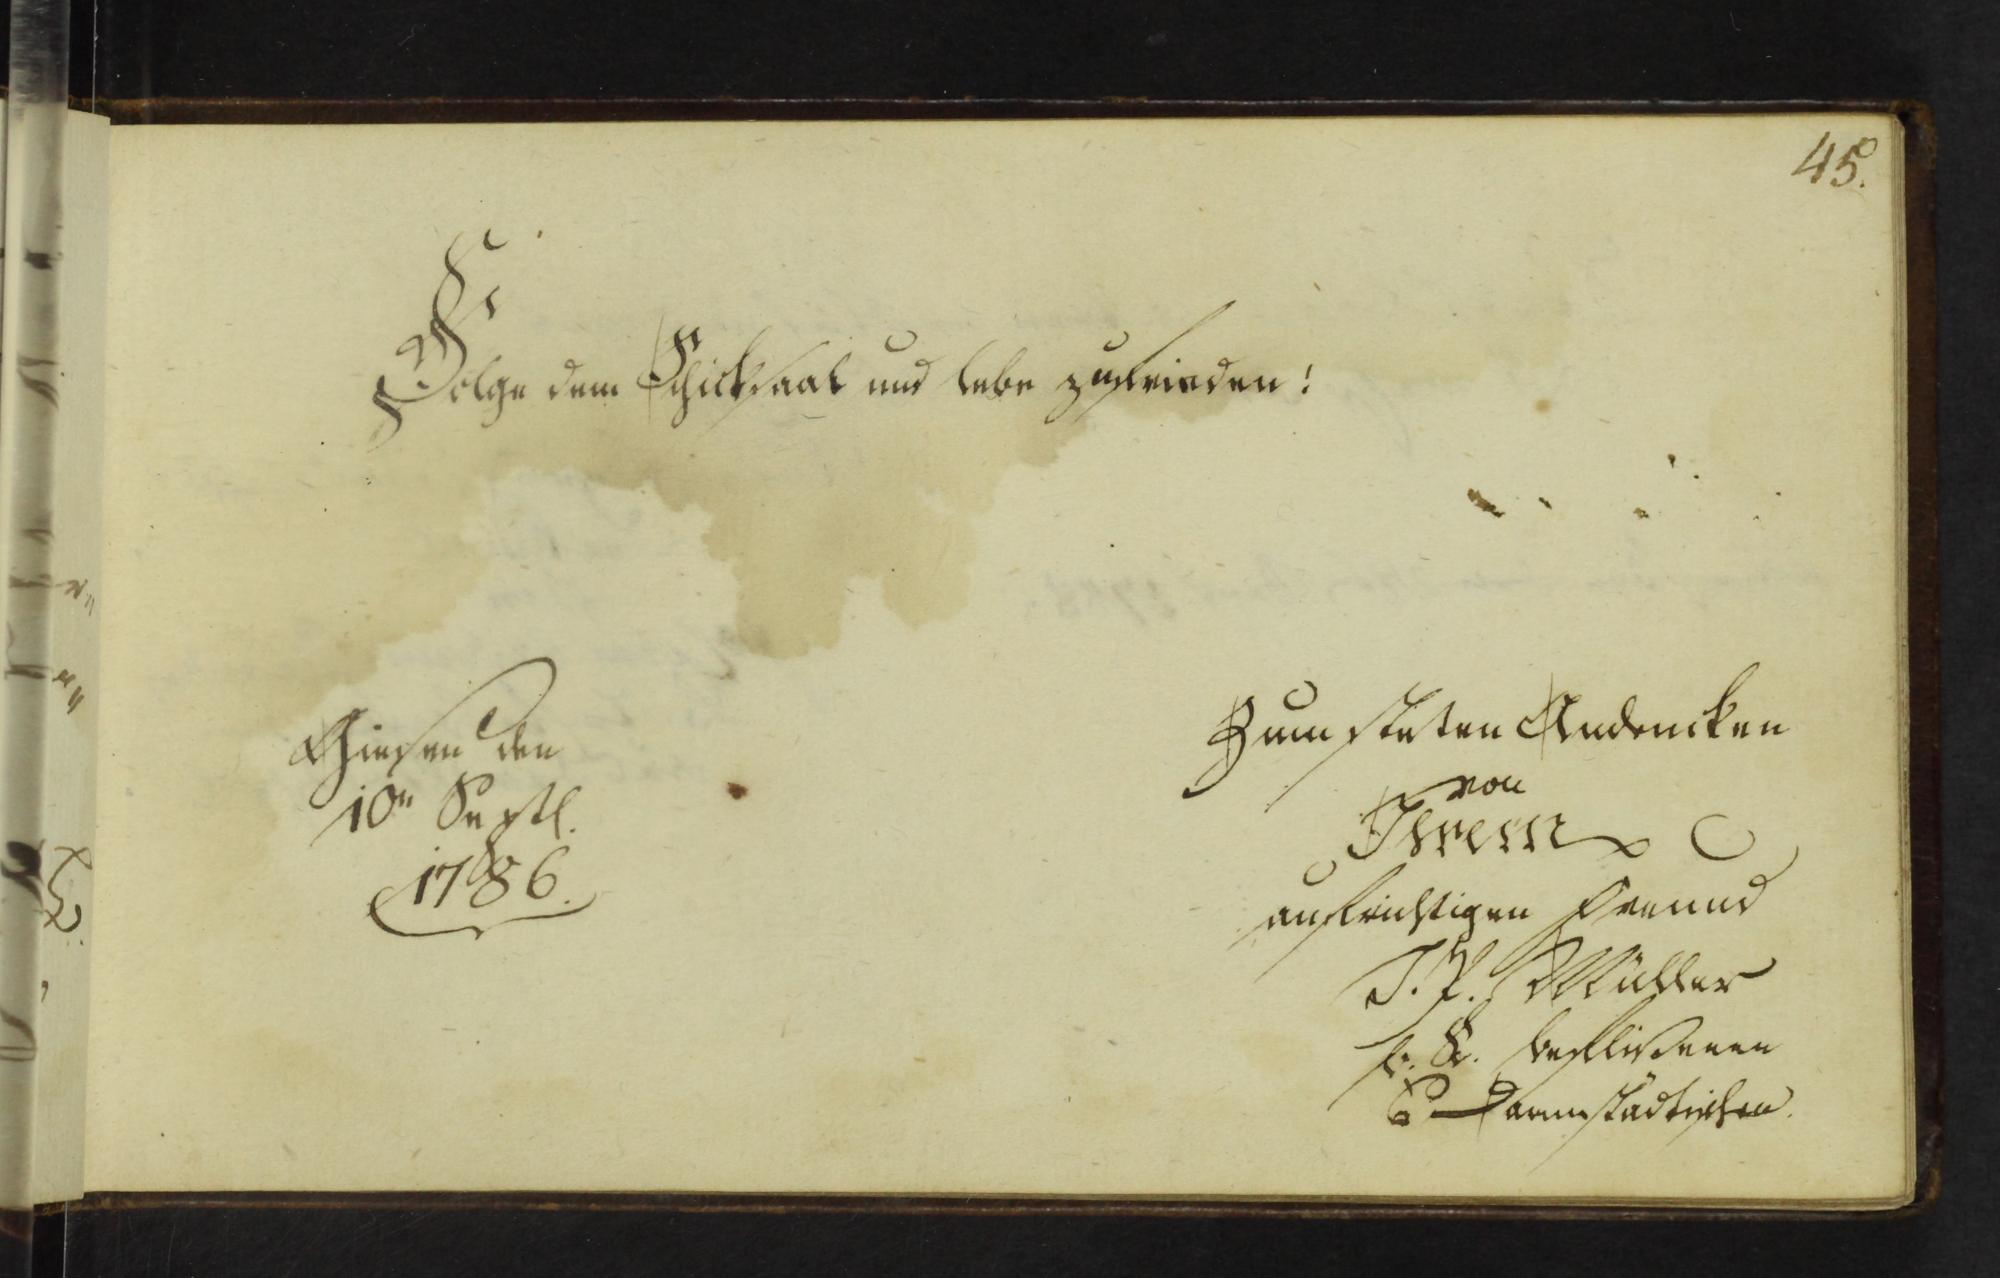 45.
Folge dem Schicksaal und lebe zufrieden!
Giesen den
10n Septl.
1786.
Zum steten Andencken
von
Ihrem
aufrichtigen Freund
J. P. Müller
beflissenen
Darmstädtischen.